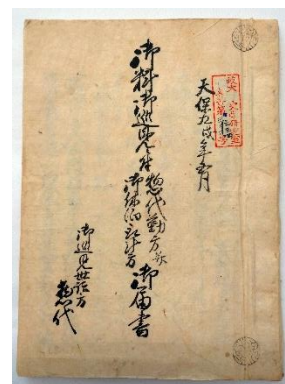 天保九戌年五月
御料御巡見ニ付惣代勤方并
御休泊取計方
御届書
御巡見世話方
惣代